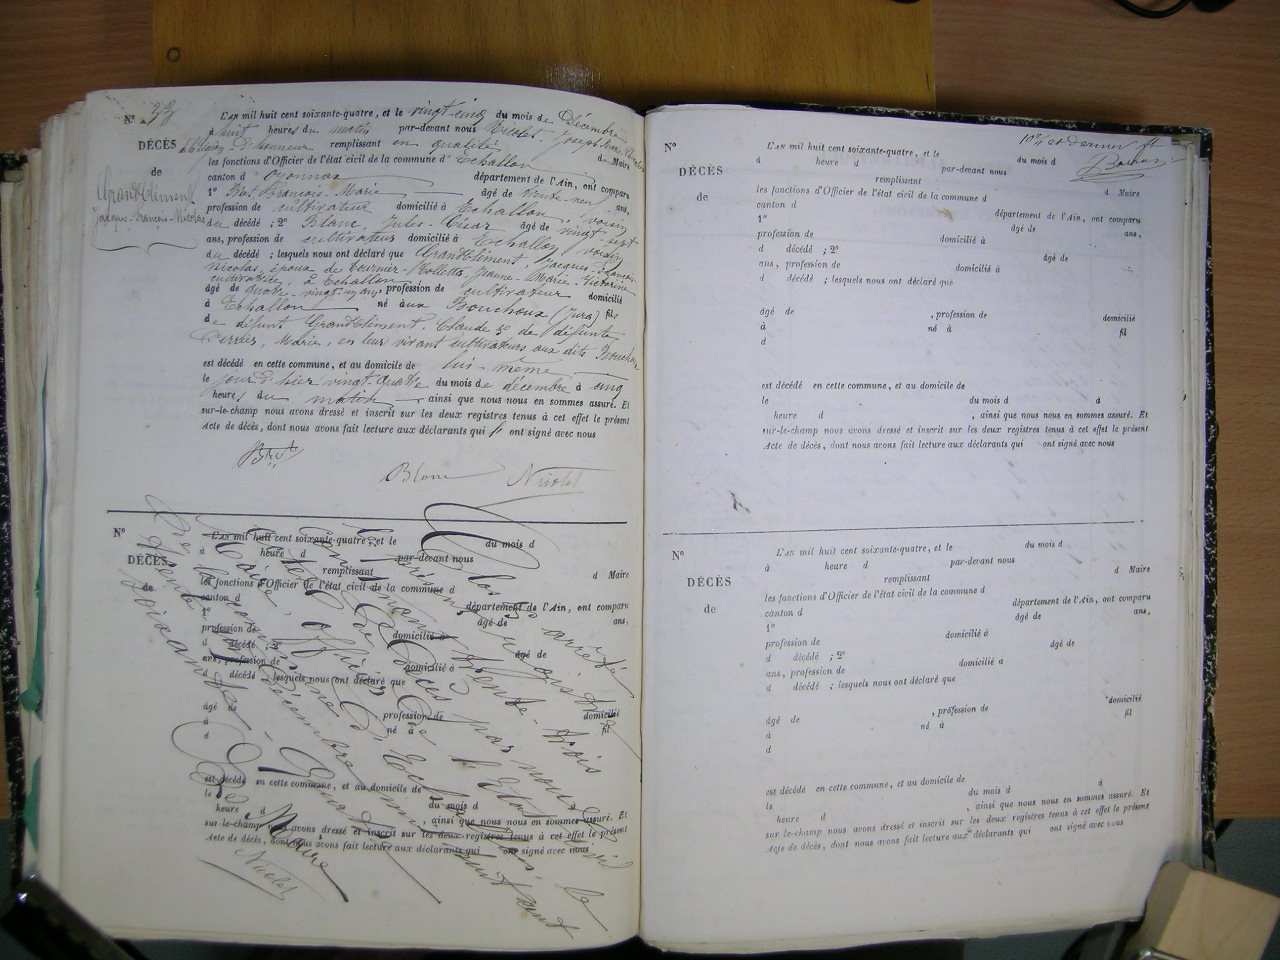 Nº 33
DÉCÈS
de
Grandclément
Jacques-François-Nicolas
L'AN mil huit cent soixante-quatre, et le vingt-cinq du mois de Décembre
à huit heures du matin par-devant nous Nicolet, Joseph
d'honneur remplissant en qualité d Maire
les fonctions d'Officier de l'état civil de la commune d'Echallon
canton d'Oyonnax département de l'Ain, ont comparu
1º François-Marie âgé de trente-neuf ans,
profession de cultivateur domicilié à Echallon, voisin
du décédé ; 2º Blanc, Jules-César âgé de vingt sept
ans, profession de cultivateur domicilié à Echallon voisin
du décédé ; lesquels nous ont déclaré que Grandclément, Jacques-François
Nicolas, époux de Jeanne-Marie-Victorine
cultivatrice, à Echallon
âgé de quatre-vingt-un ans, profession de cultivateur domicilié
à Echallon né aux Bouchoux (Jura) fils
de défunt Grandclément, Claude & de défunte
Perrier, Marie, en leur vivant cultivateurs aux dits Bouchoux
est décédé en cette commune, et au domicile de lui-même
le jour d'hier vingt-quatre du mois de décembre à cinq
heures du matin, ainsi que nous nous en sommes assuré. Et
sur-le-champ nous avons dressé et inscrit sur les deux registres tenus à cet effet le présent
Acte de décès, dont nous avons fait lecture aux déclarants qui ont signé avec nous
Blanc Nicolet
Nº
DÉCÈS
de
L'AN mil huit cent soixante-quatre, et le du mois d
à heure d par-devant nous
remplissant d Maire
les fonctions d'Officier de l'état civil de la commune d
canton d département de l'Ain, ont comparu
1º âgé de ans,
profession de domicilié à
d décédé ; 2º âgé de
ans, profession de domicilié à
d décédé ; lesquels nous ont déclaré que
âgé de profession de domicilié
à né à fil
d
est décédé en cette commune, et au domicile de
le du mois d
heure d , ainsi que nous nous en sommes assuré. Et
sur-le-champ nous avons dressé et inscrit sur les deux registres tenus à cet effet le présent
Acte de décès, dont nous avons fait lecture aux déclarants qui ont signé avec nous
Clos & arrêté
le présent registre
contenant trente-trois
actes de Décès par nous
Maire, officier de l'Etat civil
de la commune d'Echallon, le
trente un Décembre mil huit cent
soixante-quatre
Le Maire
Nicolet
10e et dernier ft
Nº
DÉCÈS
de
L'AN mil huit cent soixante-quatre, et le du mois d
d heure d par-devant nous
remplissant d Maire
les fonctions d'Officier de l'état civil de la commune d
canton d département de l'Ain, ont comparu
1º âgé de ans,
profession de domicilié à
d décédé ; 2º âgé de
ans, profession de domicilié à
d décédé ; lesquels nous ont déclaré que
âgé de , profession de domicilié
à né à fil
d
est décédé en cette commune, et au domicile de
le du mois d à
heure d , ainsi que nous nous en sommes assuré. Et
sur-le-champ nous avons dressé et inscrit sur les deux registres tenus à cet effet le présent
Acte de décès, dont nous avons fait lecture aux déclarants qui ont signé avec nous
Nº
DÉCÈS
de
L'AN mil huit cent soixante-quatre, et le du mois d
à heure d par-devant nous
remplissant d Maire
les fonctions d'Officier de l'état civil de la commune d
canton d département de l'Ain, ont comparu
1º âgé de ans,
profession de domicilié à
d décédé ; 2º âgé de
ans, profession de domicilié à
d décédé ; lesquels nous ont déclaré que
âgé de , profession de domicilié
à né à fil
d
est décédé en cette commune, et au domicile de
le du mois d à
heure d , ainsi que nous nous en sommes assuré. Et
sur-le-champ nous avons dressé et inscrit sur les deux registres tenus à cet effet le présent
Acte de décès, dont nous avons fait lecture aux déclarants qui ont signé avec nous